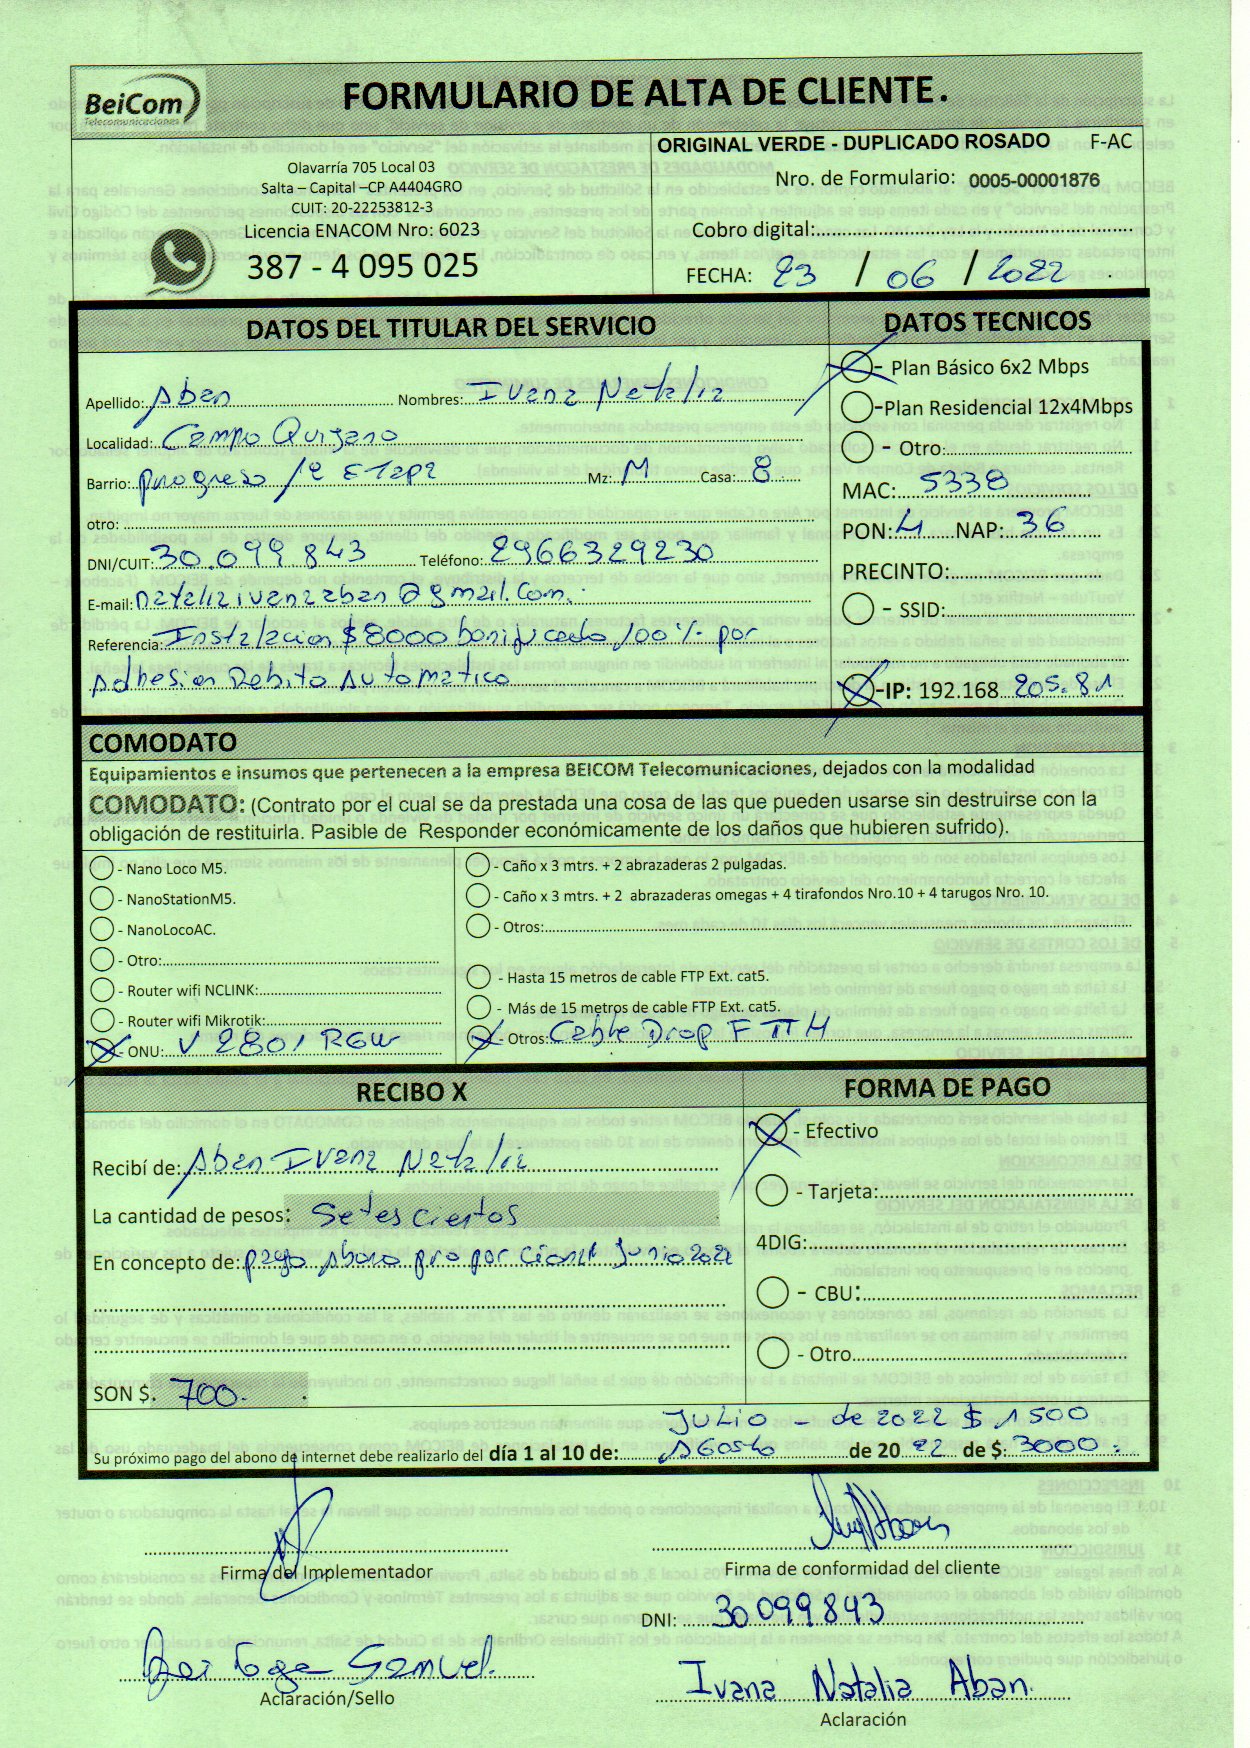 BeiCom
Telecomunicaciones
FORMULARIO DE ALTA DE CLIENTE.
Olavarría 705 Local 03
Salta – Capital –CP A4404GRO
CUIT: 20-22253812-3
Licencia ENACOM Nro: 6023
387 - 4 095 025
ORIGINAL VERDE - DUPLICADO ROSADO F-AC
Nro. de Formulario: 0005-00001876
Cobro digital:
FECHA: 23 / 06 / 2022
DATOS DEL TITULAR DEL SERVICIO
Apellido: Aban Nombres: Ivana Natalia
Localidad: Campo Quijano
Barrio: progreso 1ª Etapa Mz: M Casa: 8
otro:
DNI/CUIT: 30.099.843 Teléfono: 2966329230
E-mail: nataliaivanaaban@gmail.com.
Referencia: Instalacion $8000 bonificado 100% por
Adhesion Debito Automatico
DATOS TECNICOS
- Plan Básico 6x2 Mbps
-Plan Residencial 12x4Mbps
- Otro:
MAC: 5338
PON: 4 NAP: 36
PRECINTO:
- SSID:
-IP: 192.168 205.81
COMODATO
Equipamientos e insumos que pertenecen a la empresa BEICOM Telecomunicaciones, dejados con la modalidad
COMODATO: (Contrato por el cual se da prestada una cosa de las que pueden usarse sin destruirse con la
obligación de restituirla. Pasible de Responder económicamente de los daños que hubieren sufrido).
- Nano Loco M5.
- NanoStationM5.
- NanoLocoAC.
- Otro:
- Router wifi NCLINK:
- Router wifi Mikrotik:
- ONU: V2801RGW
- Caño x 3 mtrs. + 2 abrazaderas 2 pulgadas.
- Caño x 3 mtrs. + 2 abrazaderas omegas + 4 tirafondos Nro.10 + 4 tarugos Nro. 10.
- Otros:
- Hasta 15 metros de cable FTP Ext. cat5.
- Más de 15 metros de cable FTP Ext. cat5.
- Otros: Cable Drop FTTH
RECIBO X
Recibí de: Aban Ivana Natalia
La cantidad de pesos: Setescientos
En concepto de: pago Abono proporcional Junio 2022
SON $. 700.
FORMA DE PAGO
- Efectivo
- Tarjeta:
4DIG:
- CBU:
- Otro
JULIO - de 2022 $ 1500
Su próximo pago del abono de internet debe realizarlo del día 1 al 10 de: AGosto de 20 22 de $: 3000.
Firma del Implementador
Firma de conformidad del cliente
DNI: 30099843
Samuel.
Aclaración/Sello
Ivana Natalia Aban.
Aclaración